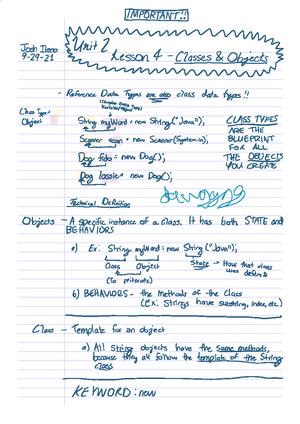 IMPORTANT!!
9-29-21
Unit 2
Lesson 4 - Classes & Objects
- Reference Data Types are also class data types!!
Class Type
Object
String myWord = new String("Java");
Scanner scan = new Scanner(System.in);
Dog fido = new Dog();
Dog lassie = new Dog();
CLASS TYPES
ARE THE
BLUEPRINT
FOR ALL
THE OBJECTS
YOU CREATE
Technical Definition
Objects - A specific instance of a class. It has both STATE and
BEHAVIORS
a) Ex: String myWord = new String ("Java");
Class Object
State → How that class
was defined
b) BEHAVIORS - the methods of the class
(Ex: Strings have substring, index, etc.)
Class - Template for an object
a) All String objects have the same methods,
because they all follow the template of the String
class
KEYWORD: new